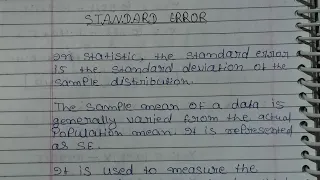 STANDARD ERROR
In statistic, the standard error
is the standard deviation of the
sample distribution.
The sample mean of a data is
generally varied from the actual
population mean. It is represented
as SE.
It is used to measure the